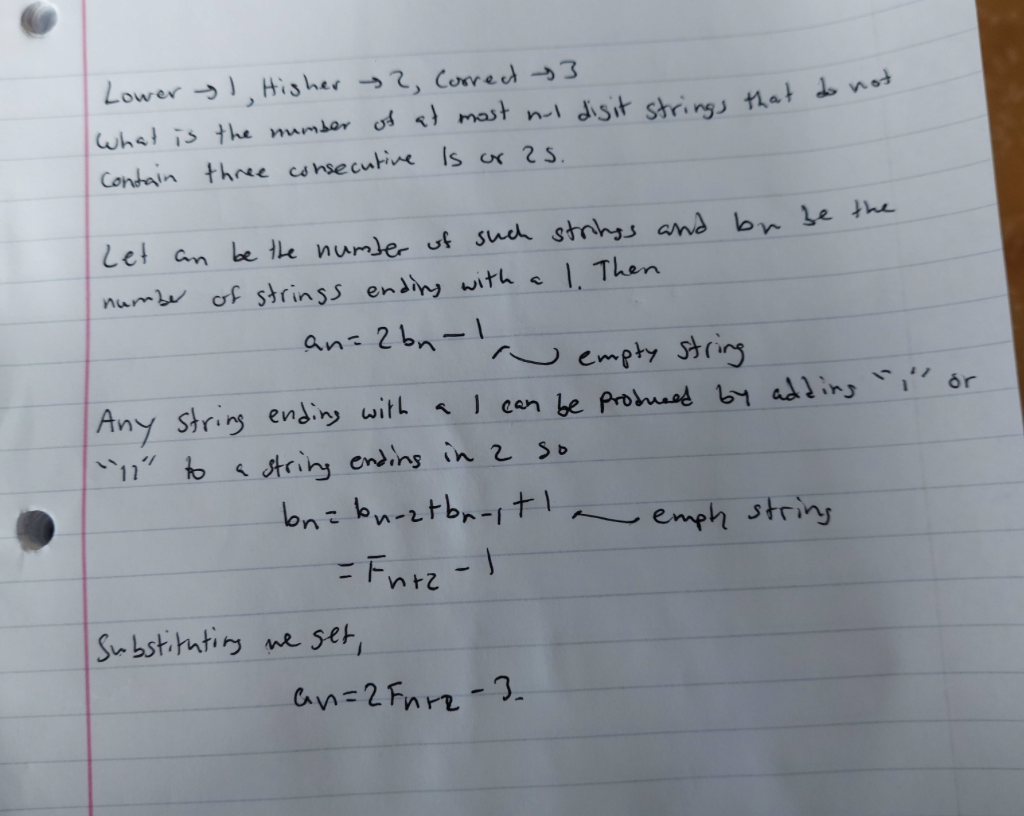 Lower → 1, Higher → 2, Correct → 3
What is the number of at most n-1 digit strings that do not
contain three consecutive 1s or 2s.
Let an be the number of such strings and bn be the
number of strings ending with a 1. Then
an = 2bn - 1 empty string
Any string ending with a 1 can be produced by adding "1" or
"11" to a string ending in 2 so
bn = bn-2 + bn-1 + 1 empty string
= Fn+2 - 1
Substituting we get,
an = 2Fn+2 - 3.